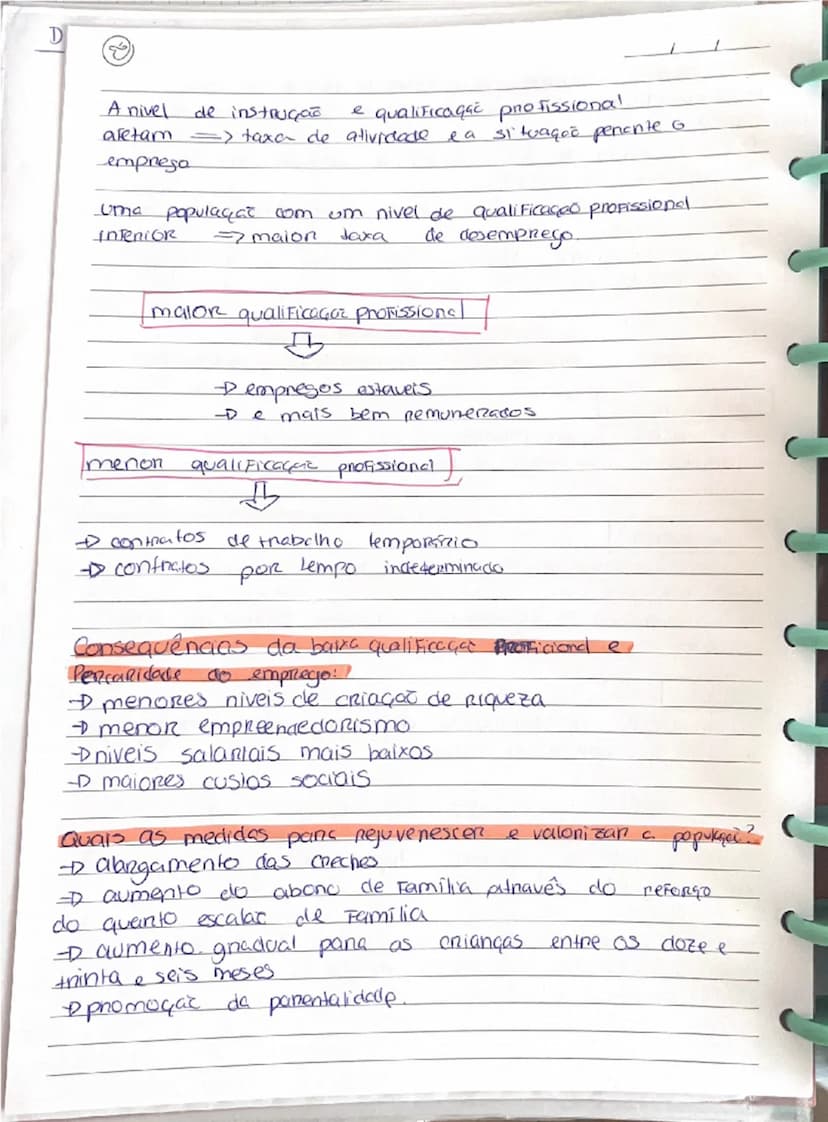 D
2
A nivel de instrução e qualificação profissional
afetam => taxa de atividade e a situação perante o
emprego
uma população com um nivel de qualificação profissional
inferior => maior taxa de desemprego.
maior qualificação profissional
→ empregos estaveis
→ e mais bem remunerados
menor qualificação profissional
→ contratos de trabalho temporário
→ contratos por tempo indeterminado
Consequências da baixa qualificação e
Percaridade do emprego:
→ menores niveis de criação de riqueza
→ menor empreendedorismo
→ niveis salariais mais baixos
→ maiores custos sociais
Quais as medidas para rejuvenescer e valorizar a população?
→ alargamento das creches
→ aumento do abono de Família através do reforço
do quarto escalão de Família
→ aumento gradual para as crianças entre os doze e
trinta e seis meses
→ promoção da parentalidade.